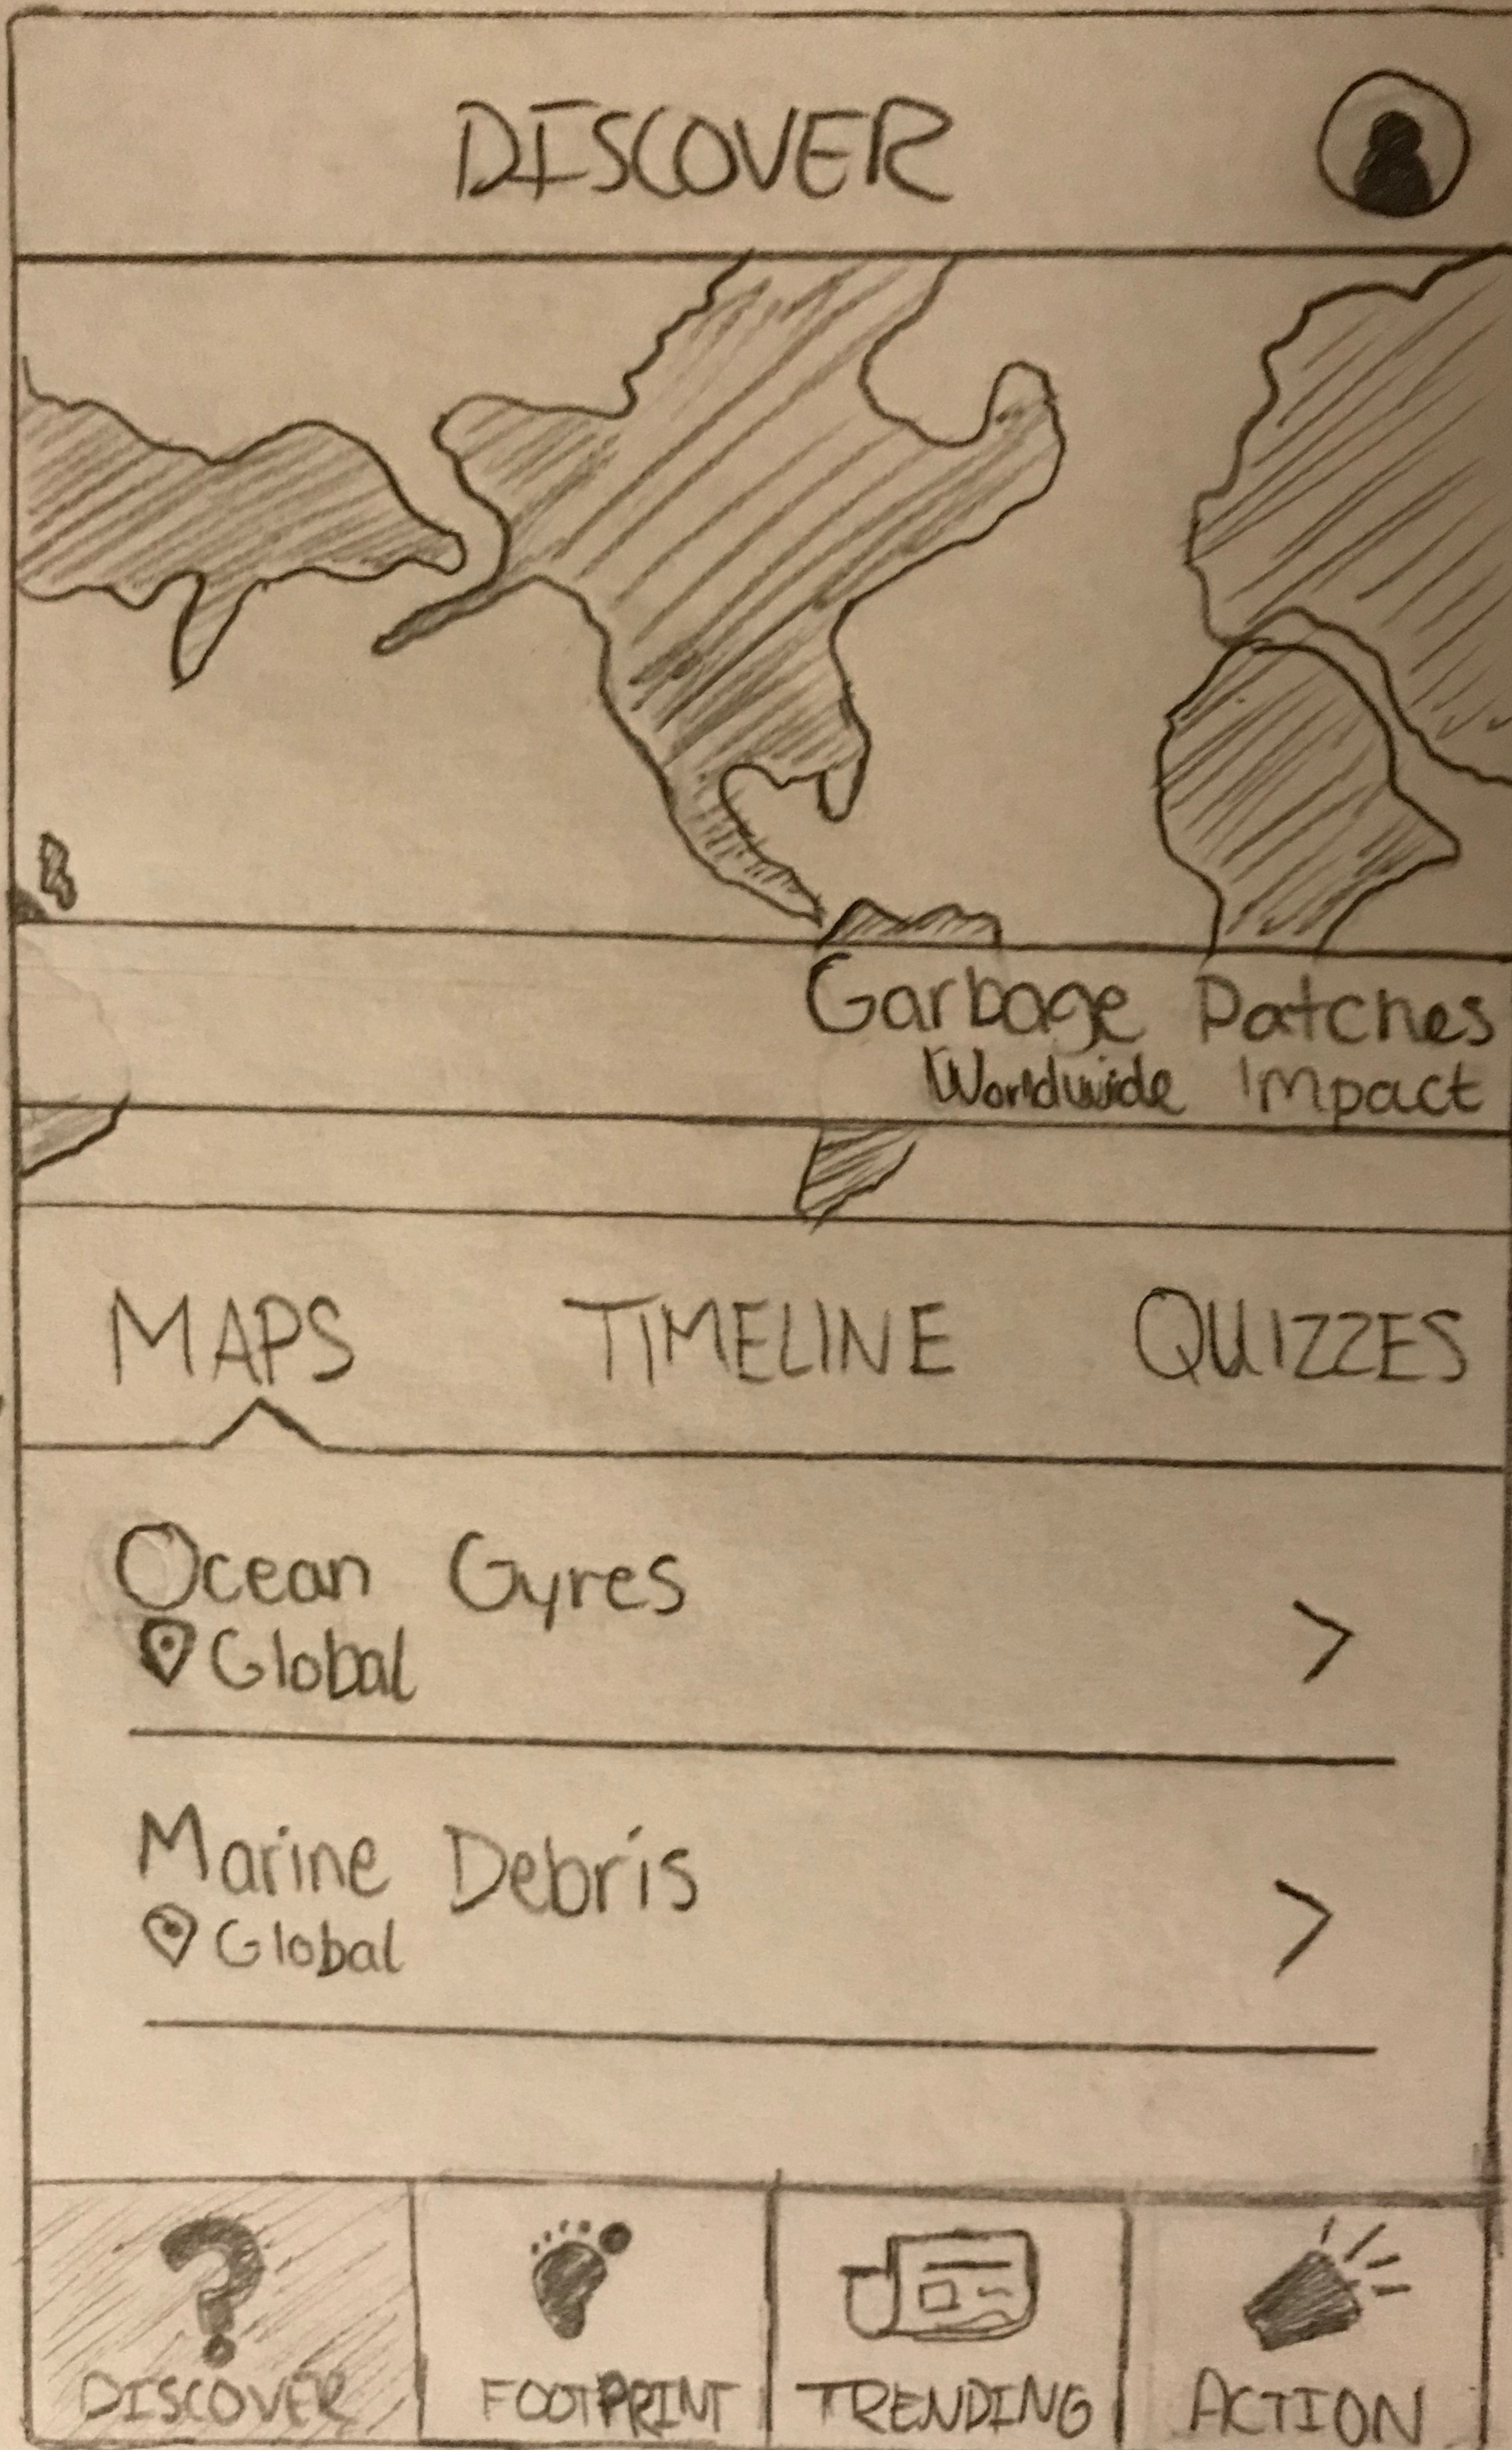 DISCOVER
Garbage Patches
Worldwide Impact
MAPS TIMELINE QUIZZES
Ocean Gyres
Global
>
Marine Debris
Global
>
?
DISCOVER FOOTPRINT TRENDING ACTION